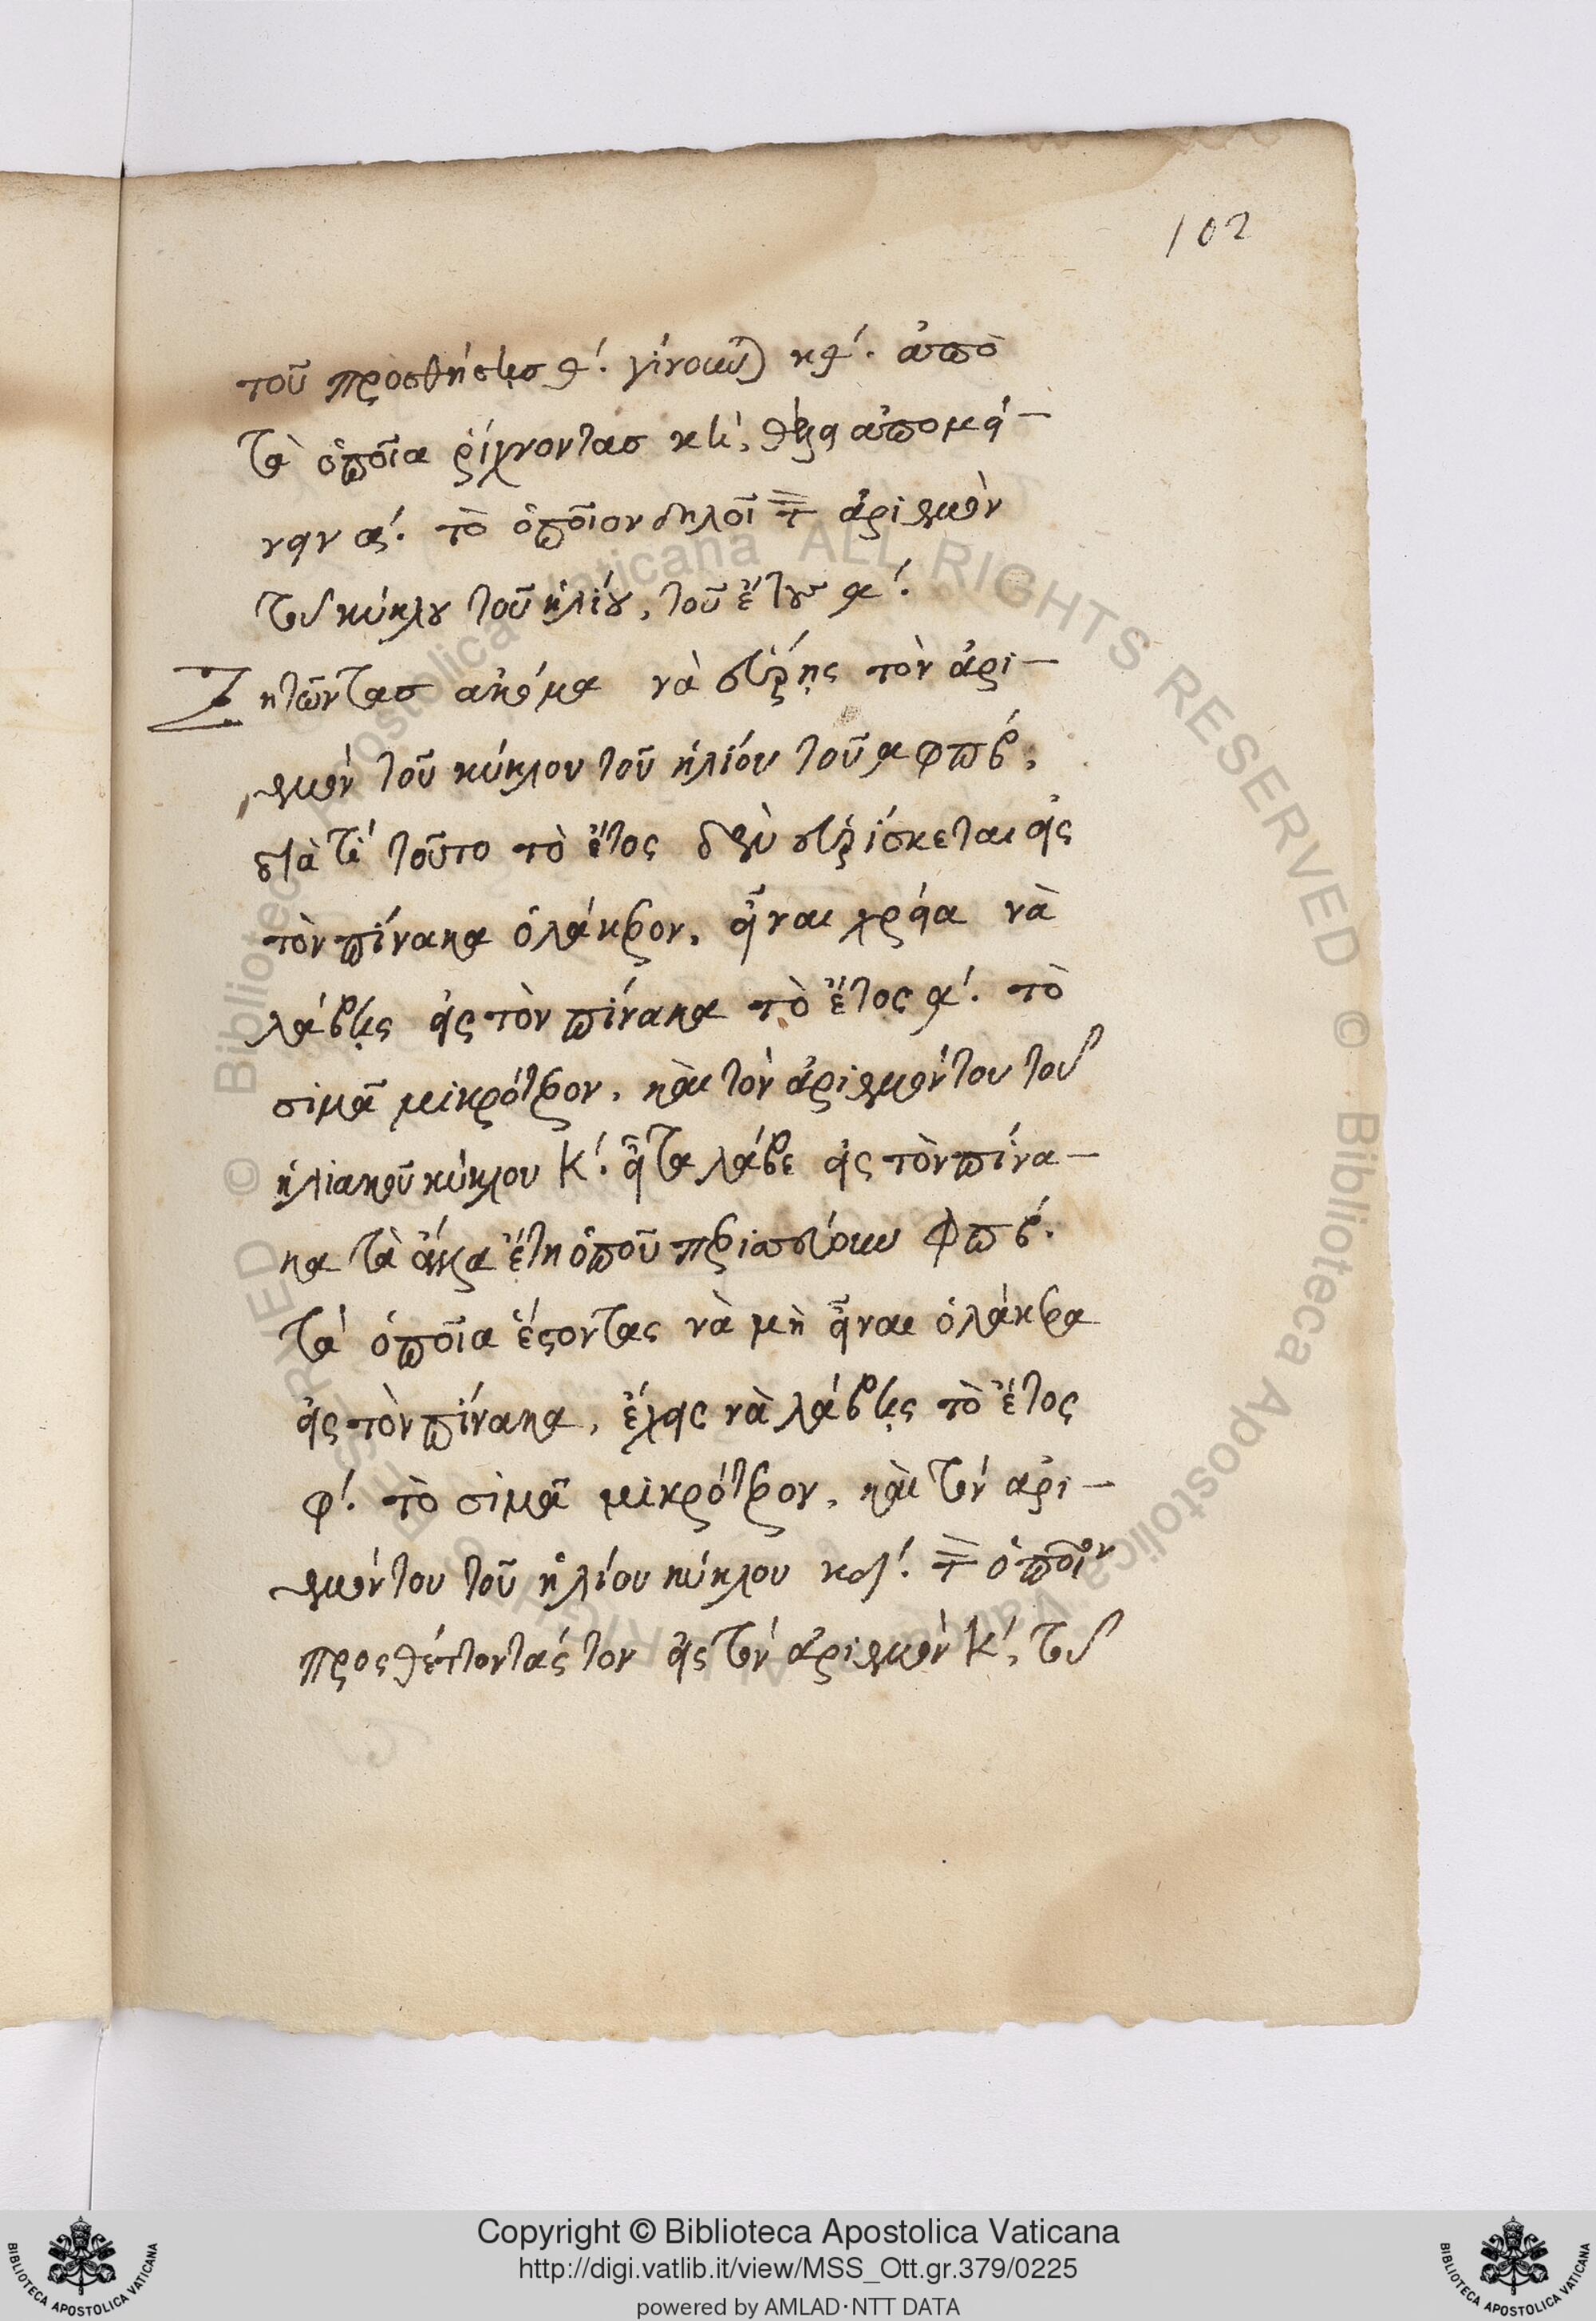 102
τοῦ προσθήσεις θ'. γίνουνται κθ'. ἀπὸ
τὰ ὁποῖα ῥίχνοντασ κη', θέλει ἀπομεί-
νειν α'. τὸ ὁποῖον δηλοῖ τὸν ἀριθμὸν
τοῦ κύκλου τοῦ ἡλίου, τοῦ ἔτους α'.
Ζητῶντασ ἀκόμα νὰ εὕρῃς τὸν ἀρι-
θμὸν τοῦ κύκλου τοῦ ἡλίου τοῦ αφπβ',
διὰ τὶ τοῦτο τὸ ἔτος δὲν εὑρίσκεται εἰς
τὸν πίνακα ὁλάκερον, εἶναι χρεία νὰ
λάβῃς εἰς τὸν πίνακα τὸ ἔτος α'. τὸ
σιμὰ μικρότερον, καὶ τὸν ἀριθμόν του τοῦ
ἡλιακοῦ κύκλου κ'. εἶτα λάβε εἰς τὸν πίνα-
κα τὰ ἄλλα ἔτη ὁποῦ περισσεύουν φπβ'.
τὰ ὁποῖα ἔσοντας νὰ μὴ εἶναι ὁλάκερα
εἰς τὸν πίνακα, ἔχεις νὰ λάβῃς τὸ ἔτος
φ'. τὸ σιμὰ μικρότερον, καὶ τὸν ἀρι-
θμόν του τοῦ ἡλίου κύκλου κδ'. τὸν ὁποῖον
προςθέτοντάς τον εἰς τὸν ἀριθμὸν κ', τοῦ
Copyright © Biblioteca Apostolica Vaticana
http://digi.vatlib.it/view/MSS_Ott.gr.379/0225
powered by AMLAD·NTT DATA